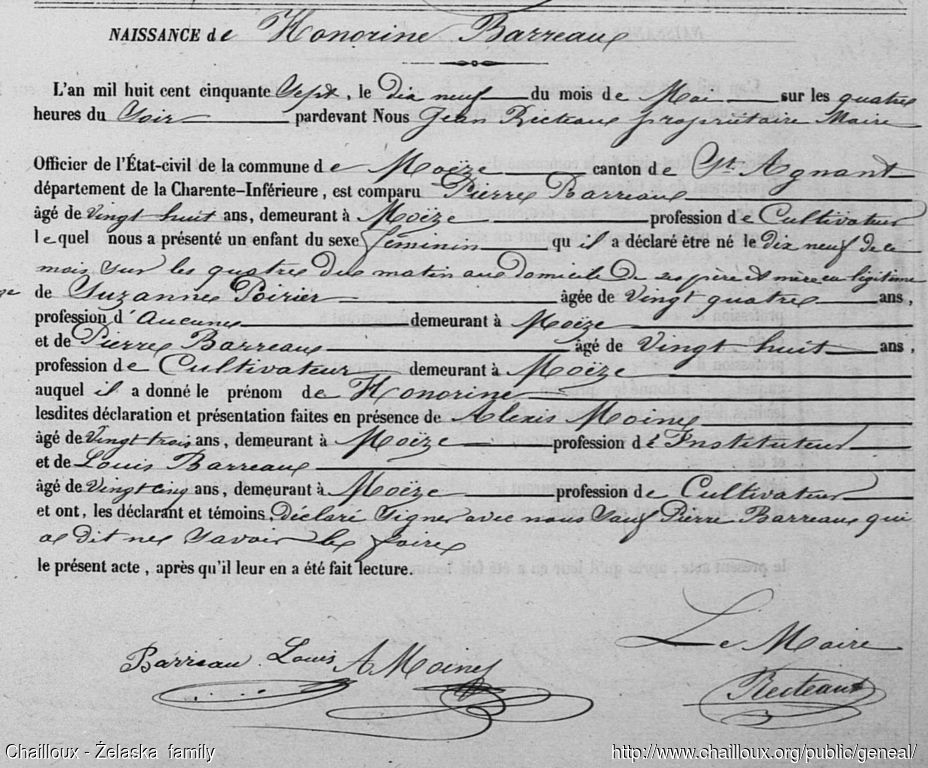 NAISSANCE de Honorine Barreau
L'an mil huit cent cinquante Sept, le dix neuf du mois de Mai sur les quatre
heures du Soir pardevant Nous Jean Recteau propriétaire Maire
Officier de l'État-civil de la commune de Moëze canton de St. Agnant
département de la Charente-Inférieure, est comparu Pierre Barreau
âgé de vingt huit ans, demeurant à Moëze profession de Cultivateur
lequel nous a présenté un enfant du sexe féminin qu'il a déclaré être né le dix neuf de ce
mois sur les quatre du matin au domicile de ses père et mère en légitime
de Suzanne Poirier âgée de vingt quatre ans,
profession d'aucune demeurant à Moëze
et de Pierre Barreau âgé de vingt huit ans,
profession de Cultivateur demeurant à Moëze
auquel il a donné le prénom de Honorine
lesdites déclaration et présentation faites en présence de Alexis Moine
âgé de vingt trois ans, demeurant à Moëze profession d'Instituteur
et de Louis Barreau
âgé de vingt cinq ans, demeurant à Moëze profession de Cultivateur
et ont, les déclarant et témoins, déclaré signer avec nous sauf Pierre Barreau qui
a dit ne savoir le faire
le présent acte, après qu'il leur en a été fait lecture.
Le Maire
Barreau Louis A Moine
Recteau
Chailloux - Żelaska family http://www.chailloux.org/public/geneal/